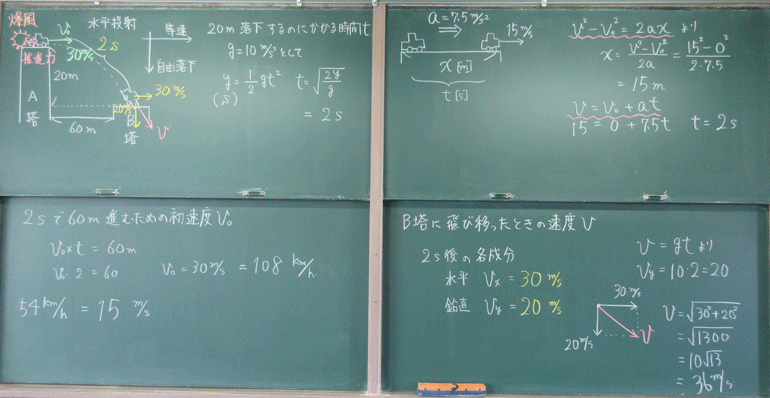 爆風
水平投射
V₀
30m/s
2s
推進力
20m
A
塔
60m
B
塔
20m/s
30m/s
V
等速
自由落下
20m落下するのにかかる時間t
g=10m/s²として
y=1/2gt² t=√(2y/g)
(S)
=2s
a=7.5m/s²
15m/s
x[m]
t[s]
V²-V₀²=2ax より
x=(V²-V₀²)/2a=(15²-0²)/2・7.5
=15m
V=V₀+at
15=0+7.5t t=2s
2sで60m進むための初速度V₀
V₀×t=60m
V₀・2=60 V₀=30m/s=108km/h
54km/h=15m/s
B塔に飛び移ったときの速度V
2s後の各成分
水平 Vx=30m/s
鉛直 Vy=20m/s
V=gtより
Vy=10・2=20
30m/s
20m/s
V
V=√(30²+20²)
=√1300
=10√13
=36m/s